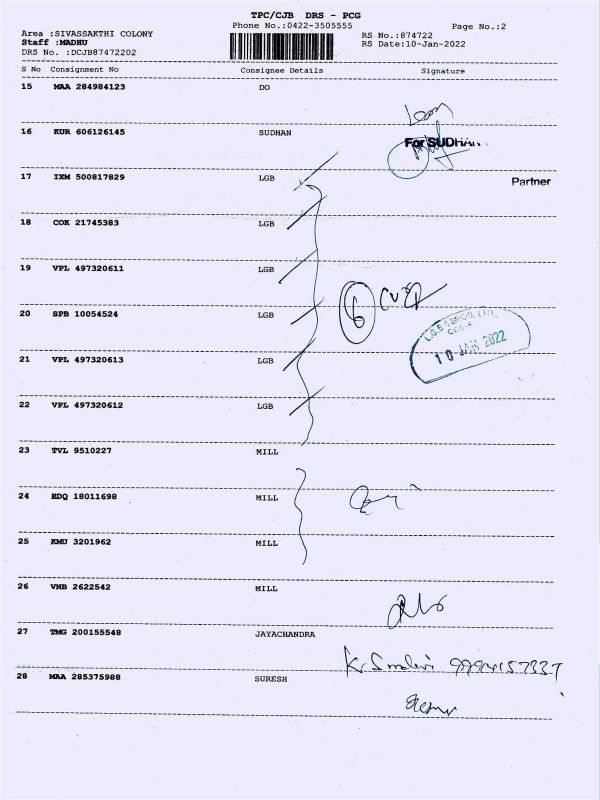 TPC/CJB DRS - PCG
Phone No.:0422-3505555
Page No.:2
Area :SIVASSAKTHI COLONY
Staff :MADHU
DRS No. :DCJB87472202
RS No.:874722
RS Date:10-Jan-2022
S No Consignment No Consignee Details Signature
15 MAA 284984123 DO
16 KUR 606126145 SUDHAN
For SUDHAN
17 IXM 500817829 LGB
Partner
18 COK 21745383 LGB
19 VPL 497320611 LGB
6
20 SPB 10054524 LGB
10 JAN 2022
21 VPL 497320613 LGB
22 VPL 497320612 LGB
23 TVL 9510227 MILL
24 EDQ 18011698 MILL
25 KMU 3201962 MILL
26 VNB 2622542 MILL
27 TMG 200155548 JAYACHANDRA
28 MAA 285375988 SURESH